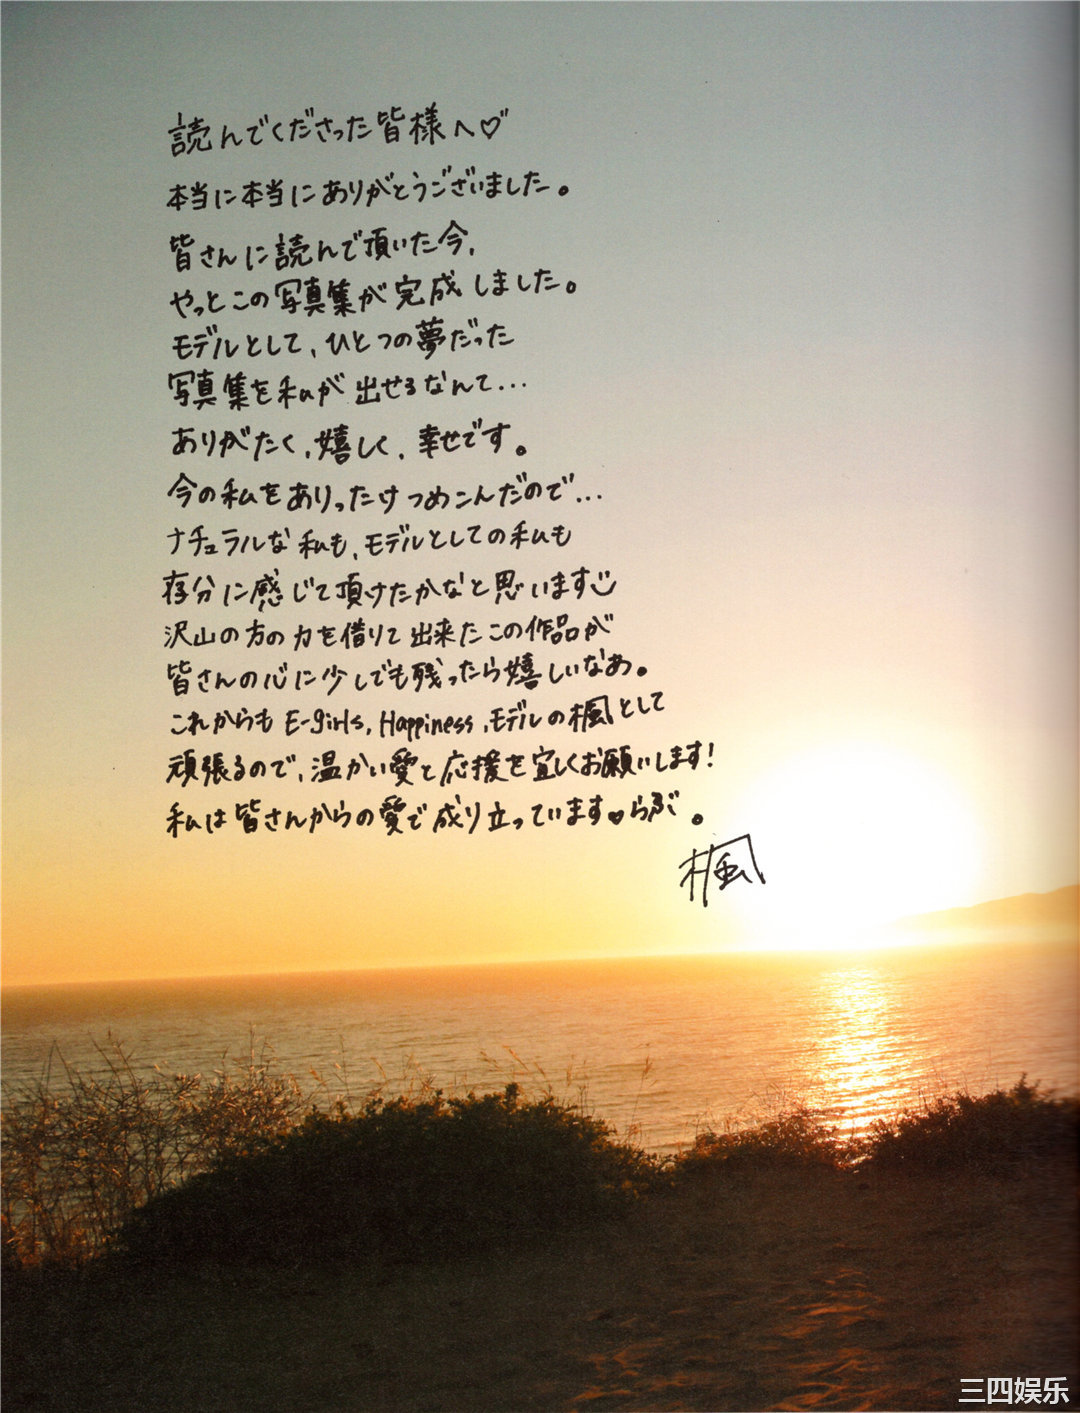 読んでくださった皆様へ♡
本当に本当にありがとうございました。
皆さんに読んで頂いた今、
やっとこの写真集が完成しました。
モデルとして、ひとつの夢だった
写真集を私が出せるなんて...
ありがたく、嬉しく、幸せです。
今の私をありったけつめこんだので...
ナチュラルな私も、モデルとしての私も
存分に感じて頂けたかなと思います
沢山の方の力を借りて出来たこの作品が
皆さんの心に少しでも残ったら嬉しいなあ。
これからも E-girls, Happiness, モデルの楓として
頑張るので、温かい愛と応援を宜しくお願いします!
私は皆さんからの愛で成り立っています♥らぶ。
楓
三四娱乐